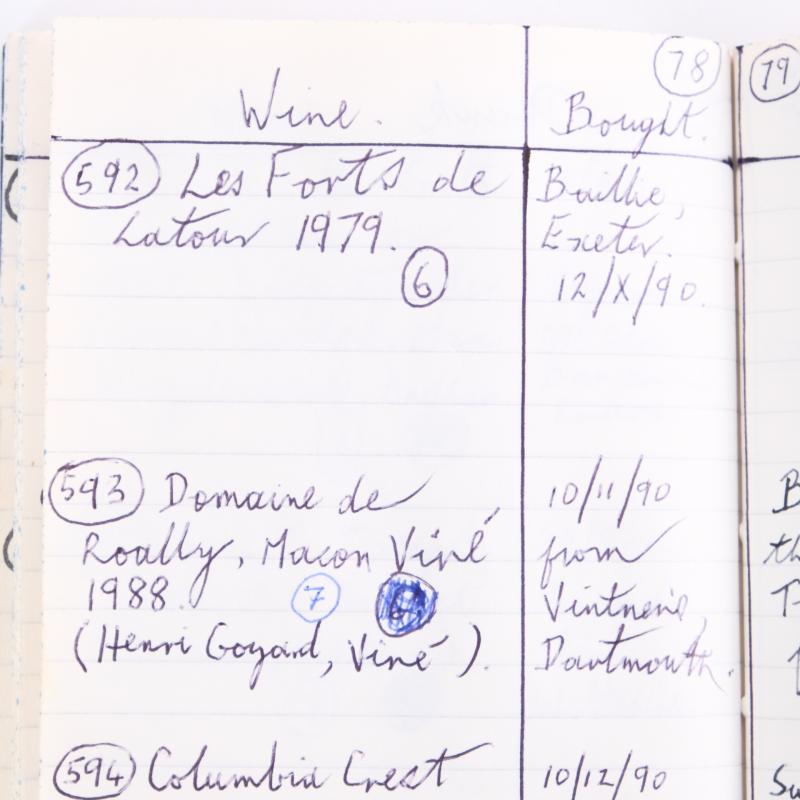 78
79
Wine. Bought.
592 Les Forts de Baillie,
Latour 1979. Exeter.
6 12/X/90.
593 Domaine de 10/11/90
Roally, Macon Viré from
1988. 7 Vintnerie,
(Henri Goyard, Viré). Dartmouth.
594 Columbia Crest 10/12/90